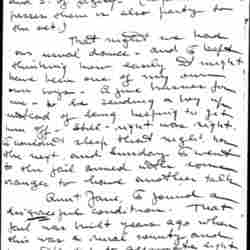 passes them is also party to
the act.)
That night we had
our usual dance - and I kept
thinking how easily it might
have been one of my own
our boys - A fine business for
me - to be sending a boy up
instead of being helping to get
him off - Still - right was right.
I couldn't sleep that night nor
the next and Sunday I went
to the jail armed with some
oranges to have another talk
Aunt Jane, I found a
disgraceful condition. That
jail was built years ago when
this was a rural county and